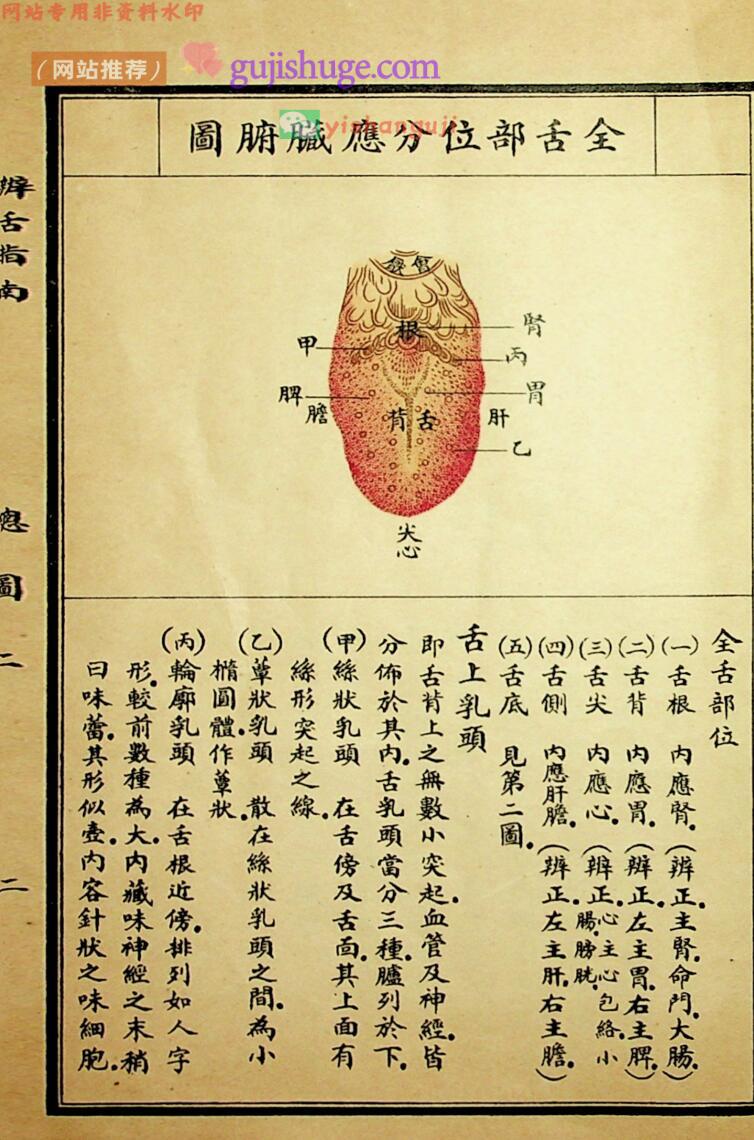 网站专用非资料水印
（网站推荐）
gujishuge.com
yishanguji
全舌部位分應臟腑圖
辨舌指南
總圖
二
二
會厭
根
腎
甲
丙
脾
胃
膽
舌背
肝
乙
尖心
全舌部位
(一)舌根　內應腎．(辨正．主腎．命門．大腸．)
(二)舌背　內應胃．(辨正．左主胃．右主脾．)
(三)舌尖　內應心．(辨正．心主心包絡．小腸．膀胱．)
(四)舌側　內應肝膽．(辨正．左主肝．右主膽．)
(五)舌底　見第二圖．
舌上乳頭
即舌背上之無數小突起．血管及神經．皆
分佈於其內．舌乳頭當分三種．臚列於下．
(甲)絲狀乳頭　在舌傍及舌面．其上面有
絲形突起之線．
(乙)蕈狀乳頭　散在絲狀乳頭之間．為小
橢圓體．作蕈狀．
(丙)輪廓乳頭　在舌根近傍．排列如人字
形．較前數種為大．內藏味神經之末稍
曰味蕾．其形似壺．內容針狀之味細胞．